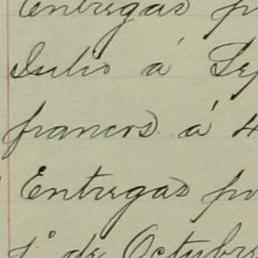 Entregas p
Julio á Se
francos á 4
Entregas po
1º de Octubre